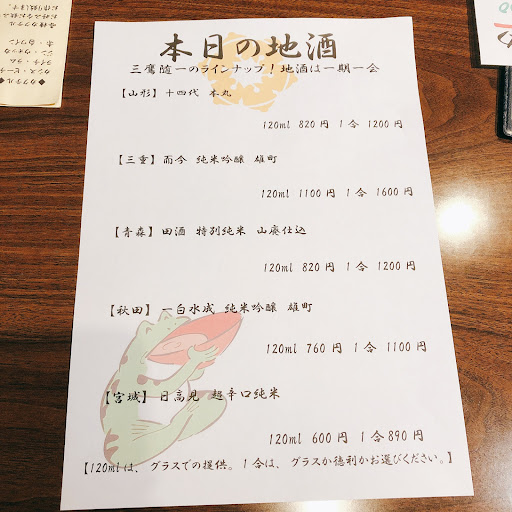 本日の地酒
三鷹随一のラインナップ!地酒は一期一会
【山形】十四代 本丸
120ml 820円 1合 1200円
【三重】而今 純米吟醸 雄町
120ml 1100円 1合 1600円
【青森】田酒 特別純米 山廃仕込
120ml 820円 1合 1200円
【秋田】一白水成 純米吟醸 雄町
120ml 760円 1合 1100円
【宮城】日高見 超辛口純米
120ml 600円 1合890円
【120mlは、グラスでの提供。1合は、グラスか徳利かお選びください。】
◆カクテル◆
カシス・ピーチ
ライチ・ラム
ジン・ウォッカ
赤・白ワイン
各種カクテル